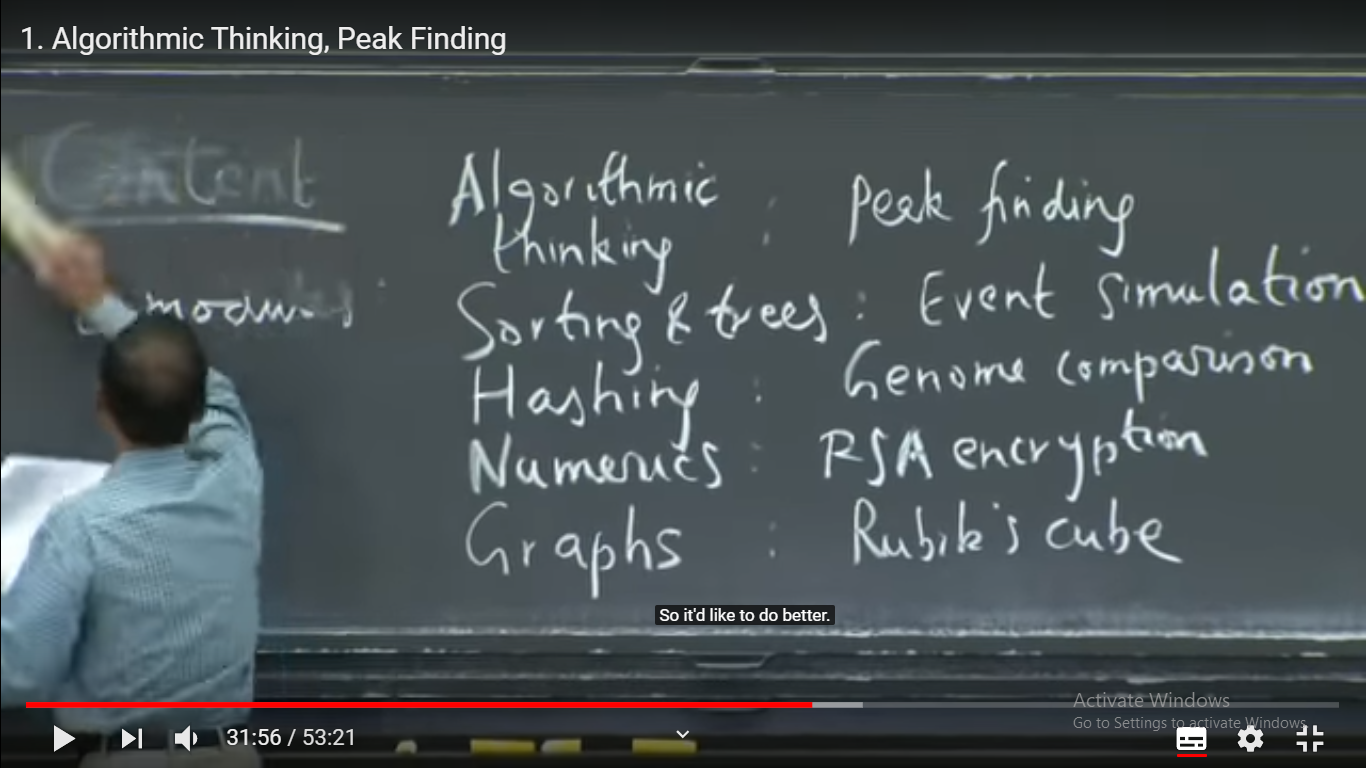 1. Algorithmic Thinking, Peak Finding
Content
modules :
Algorithmic : Peak finding
thinking
Sorting & trees : Event simulation
Hashing : Genome comparison
Numerics : RSA encryption
Graphs : Rubik's cube
So it'd like to do better.
Activate Windows
Go to Settings to activate Windows.
31:56 / 53:21